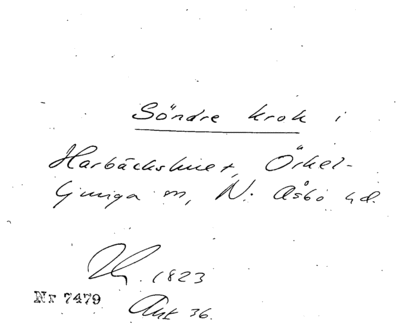 Söndre krok i
Harbäckshult, Örkel-
ljunga sn, N. Åsbo hd.
1823
Nr 7479
Ant 36.